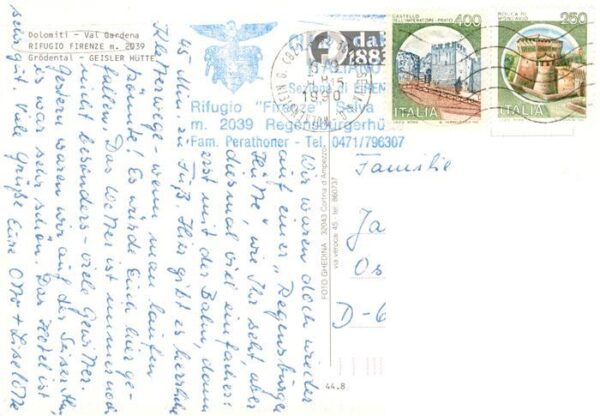 Dolomiti - Val Gardena
RIFUGIO FIRENZE m. 2039
Grödental - GEISLER HÜTTE
Rifugio "Firenze" Selva
m. 2039 Regensburgerhü
Fam. Perathoner - Tel. 0471/796307
1990
CASTELLO
DELL'IMPERATORE - PRATO
400
ITALIA
ROCCA DI
MONDAVIO
250
ITALIA
Wir waren doch wieder
auf einer "Regensburger
Hütte", wie Ihr seht, aber
diesmal viel einfacher:
erst mit der Bahn, dann
45 Min. zu Fuß. Hier gibt es herrliche
Kletterwege - wenn man laufen
könnte! Es würde Euch hier ge-
fallen. Das Wetter ist immer noch
nicht besonders - viele Gewitter.
Gestern waren wir auf der Seiseralm,
es war sehr schön. Das Hotel ist
sehr gut. Viele Grüße Eure Otto + Liselotte
FOTO GHEDINA - 32043 Cortina d'Ampezzo
via veroca 45 - tel. 860237
Familie
Ja
Os
D-6
44.8